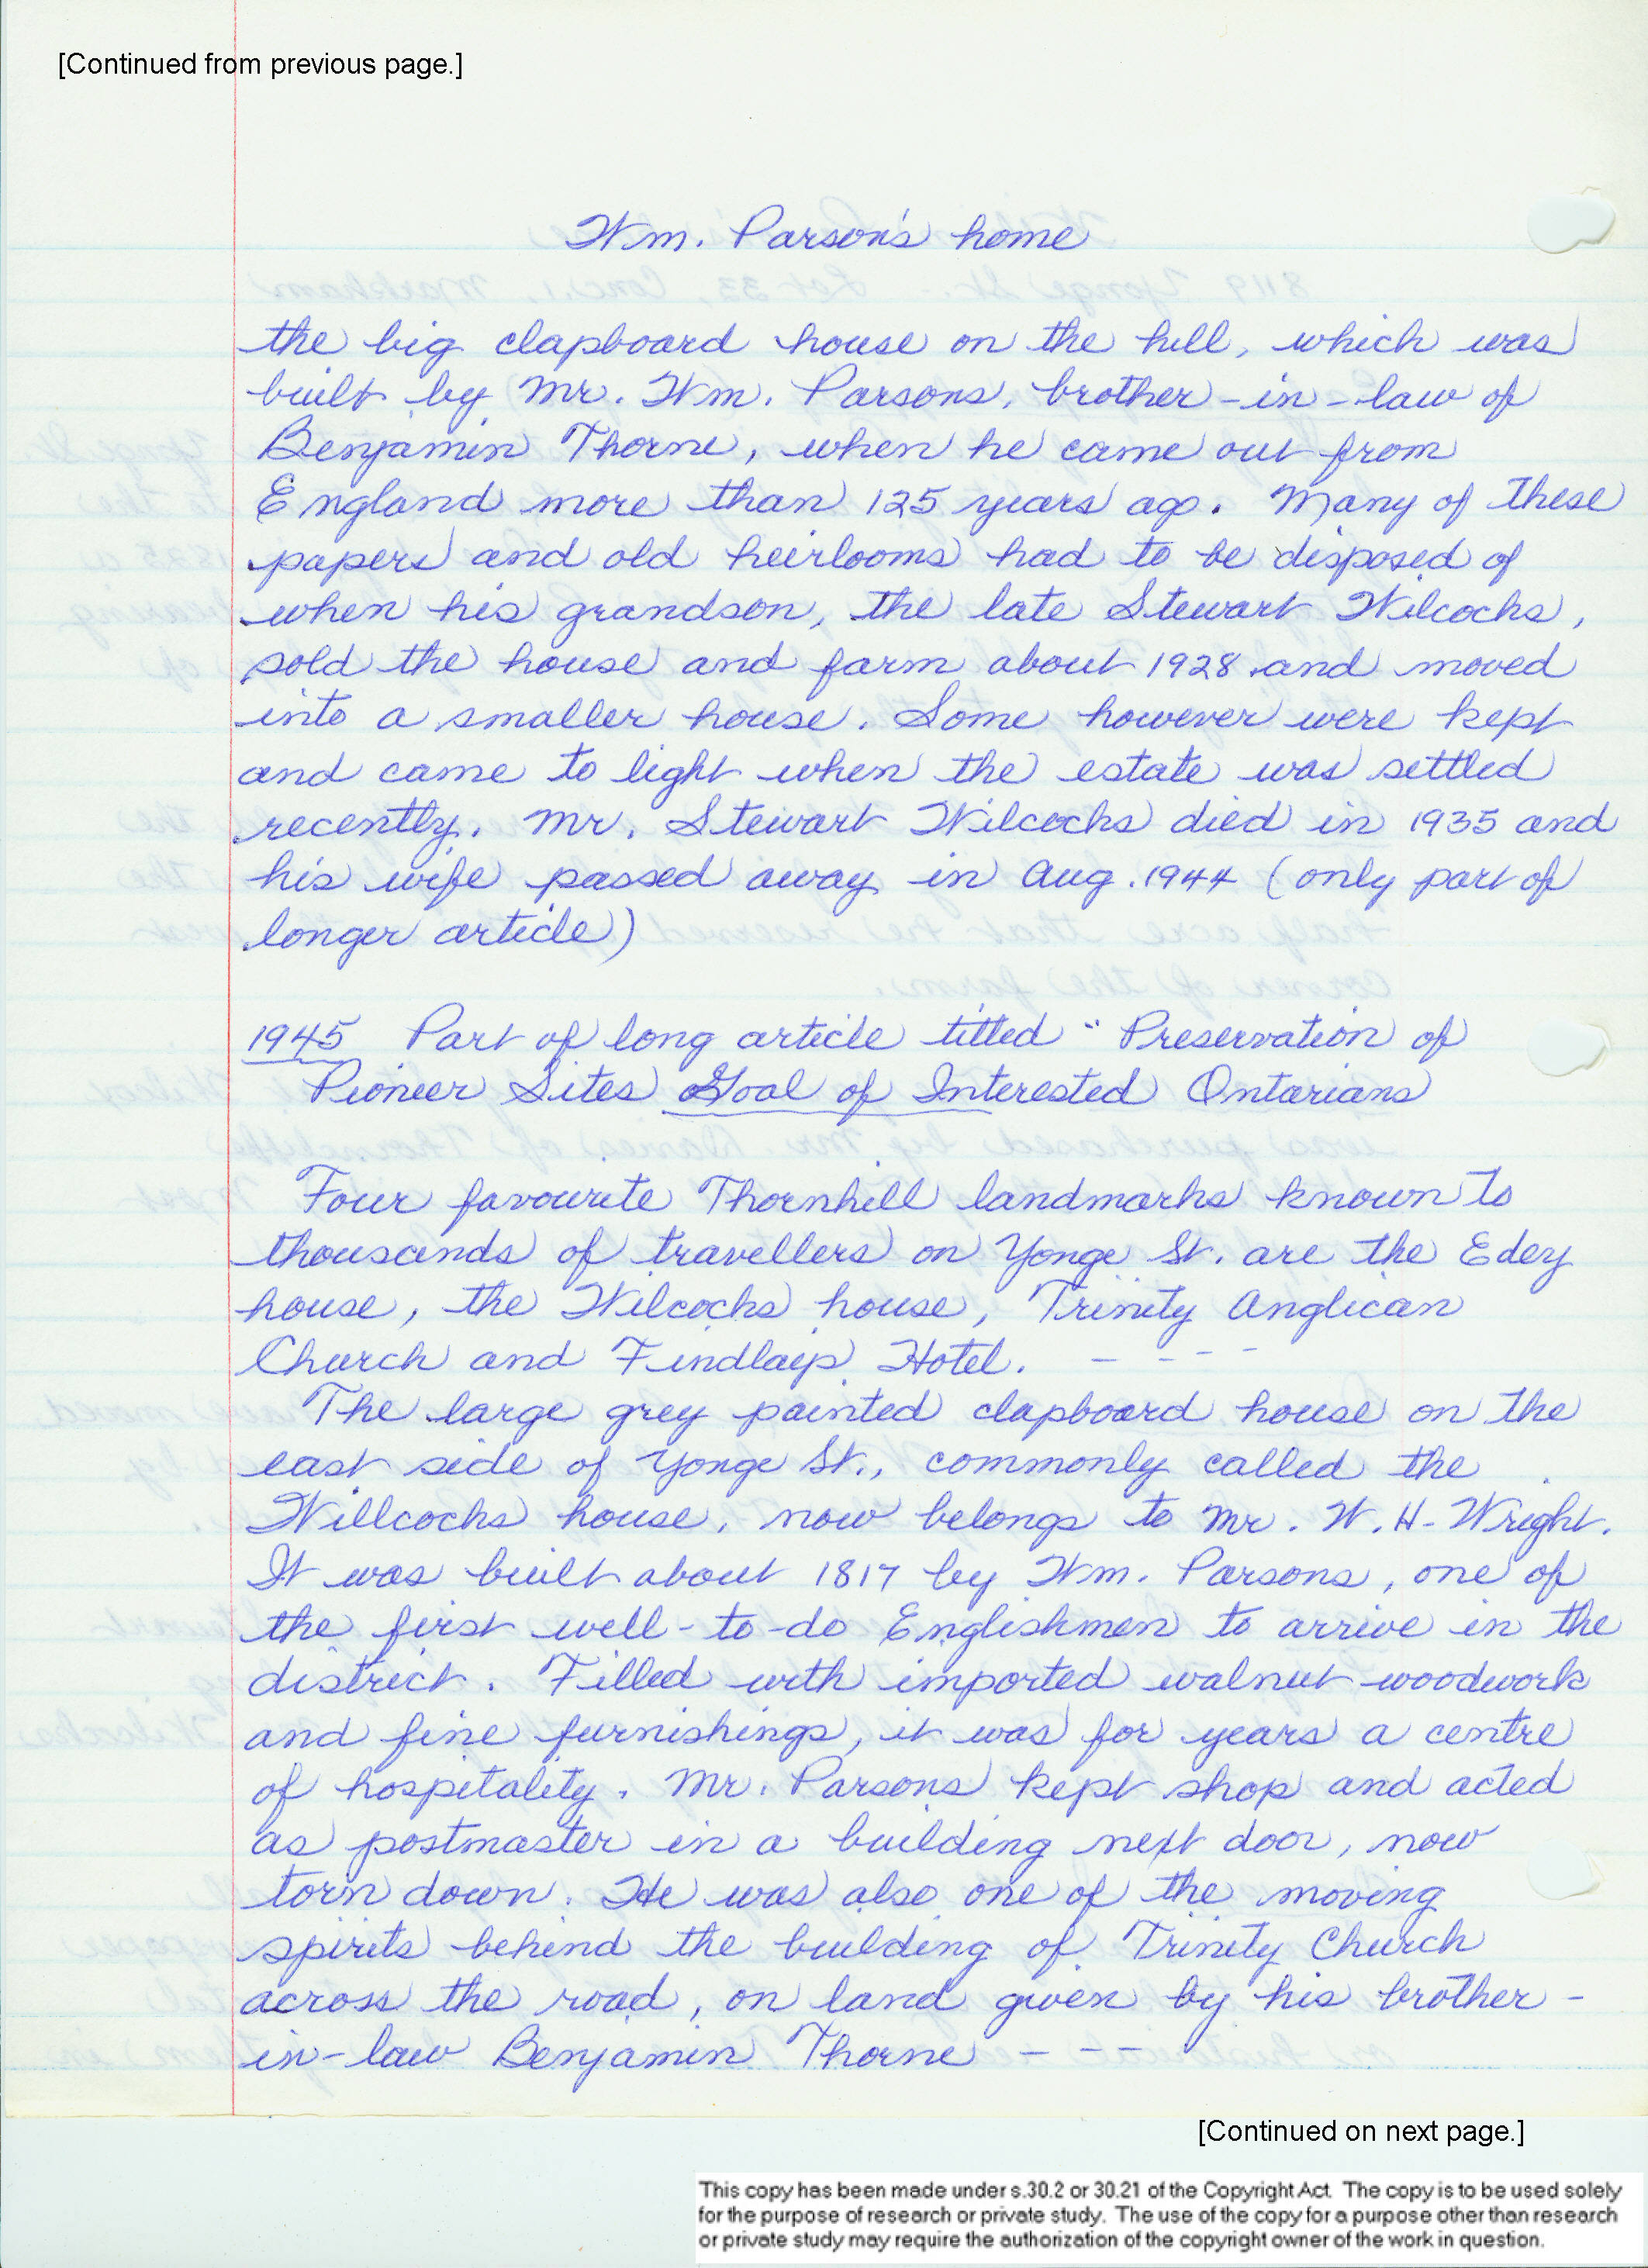 [Continued from previous page.]
Wm. Parson's home
the big clapboard house on the hill, which was
built by Mr. Wm. Parsons, brother-in-law of
Benjamin Thorne, when he came out from
England more than 125 years ago. Many of these
papers and old heirlooms had to be disposed of
when his grandson, the late Stewart Wilcocks,
sold the house and farm about 1928 and moved
into a smaller house. Some however were kept
and came to light when the estate was settled
recently. Mr. Stewart Wilcocks died in 1935 and
his wife passed away in Aug. 1944 (only part of
longer article)
1945 Part of long article titled "Preservation of
Pioneer Sites Goal of Interested Ontarians
Four favourite Thornhill landmarks known to
thousands of travellers on Yonge St. are the Edey
house, the Wilcocks house, Trinity Anglican
Church and Findlays Hotel. - - - -
The large grey painted clapboard house on the
east side of Yonge St., commonly called the
Willcocks house, now belongs to Mr. W. H. Wright.
It was built about 1817 by Wm. Parsons, one of
the first well-to-do Englishmen to arrive in the
district. Filled with imported walnut woodwork
and fine furnishings, it was for years a centre
of hospitality. Mr. Parsons kept shop and acted
as postmaster in a building next door, now
torn down. He was also one of the moving
spirits behind the building of Trinity Church
across the road, on land given by his brother-
in-law Benjamin Thorne - - -
[Continued on next page.]
This copy has been made under s.30.2 or 30.21 of the Copyright Act. The copy is to be used solely
for the purpose of research or private study. The use of the copy for a purpose other than research
or private study may require the authorization of the copyright owner of the work in question.